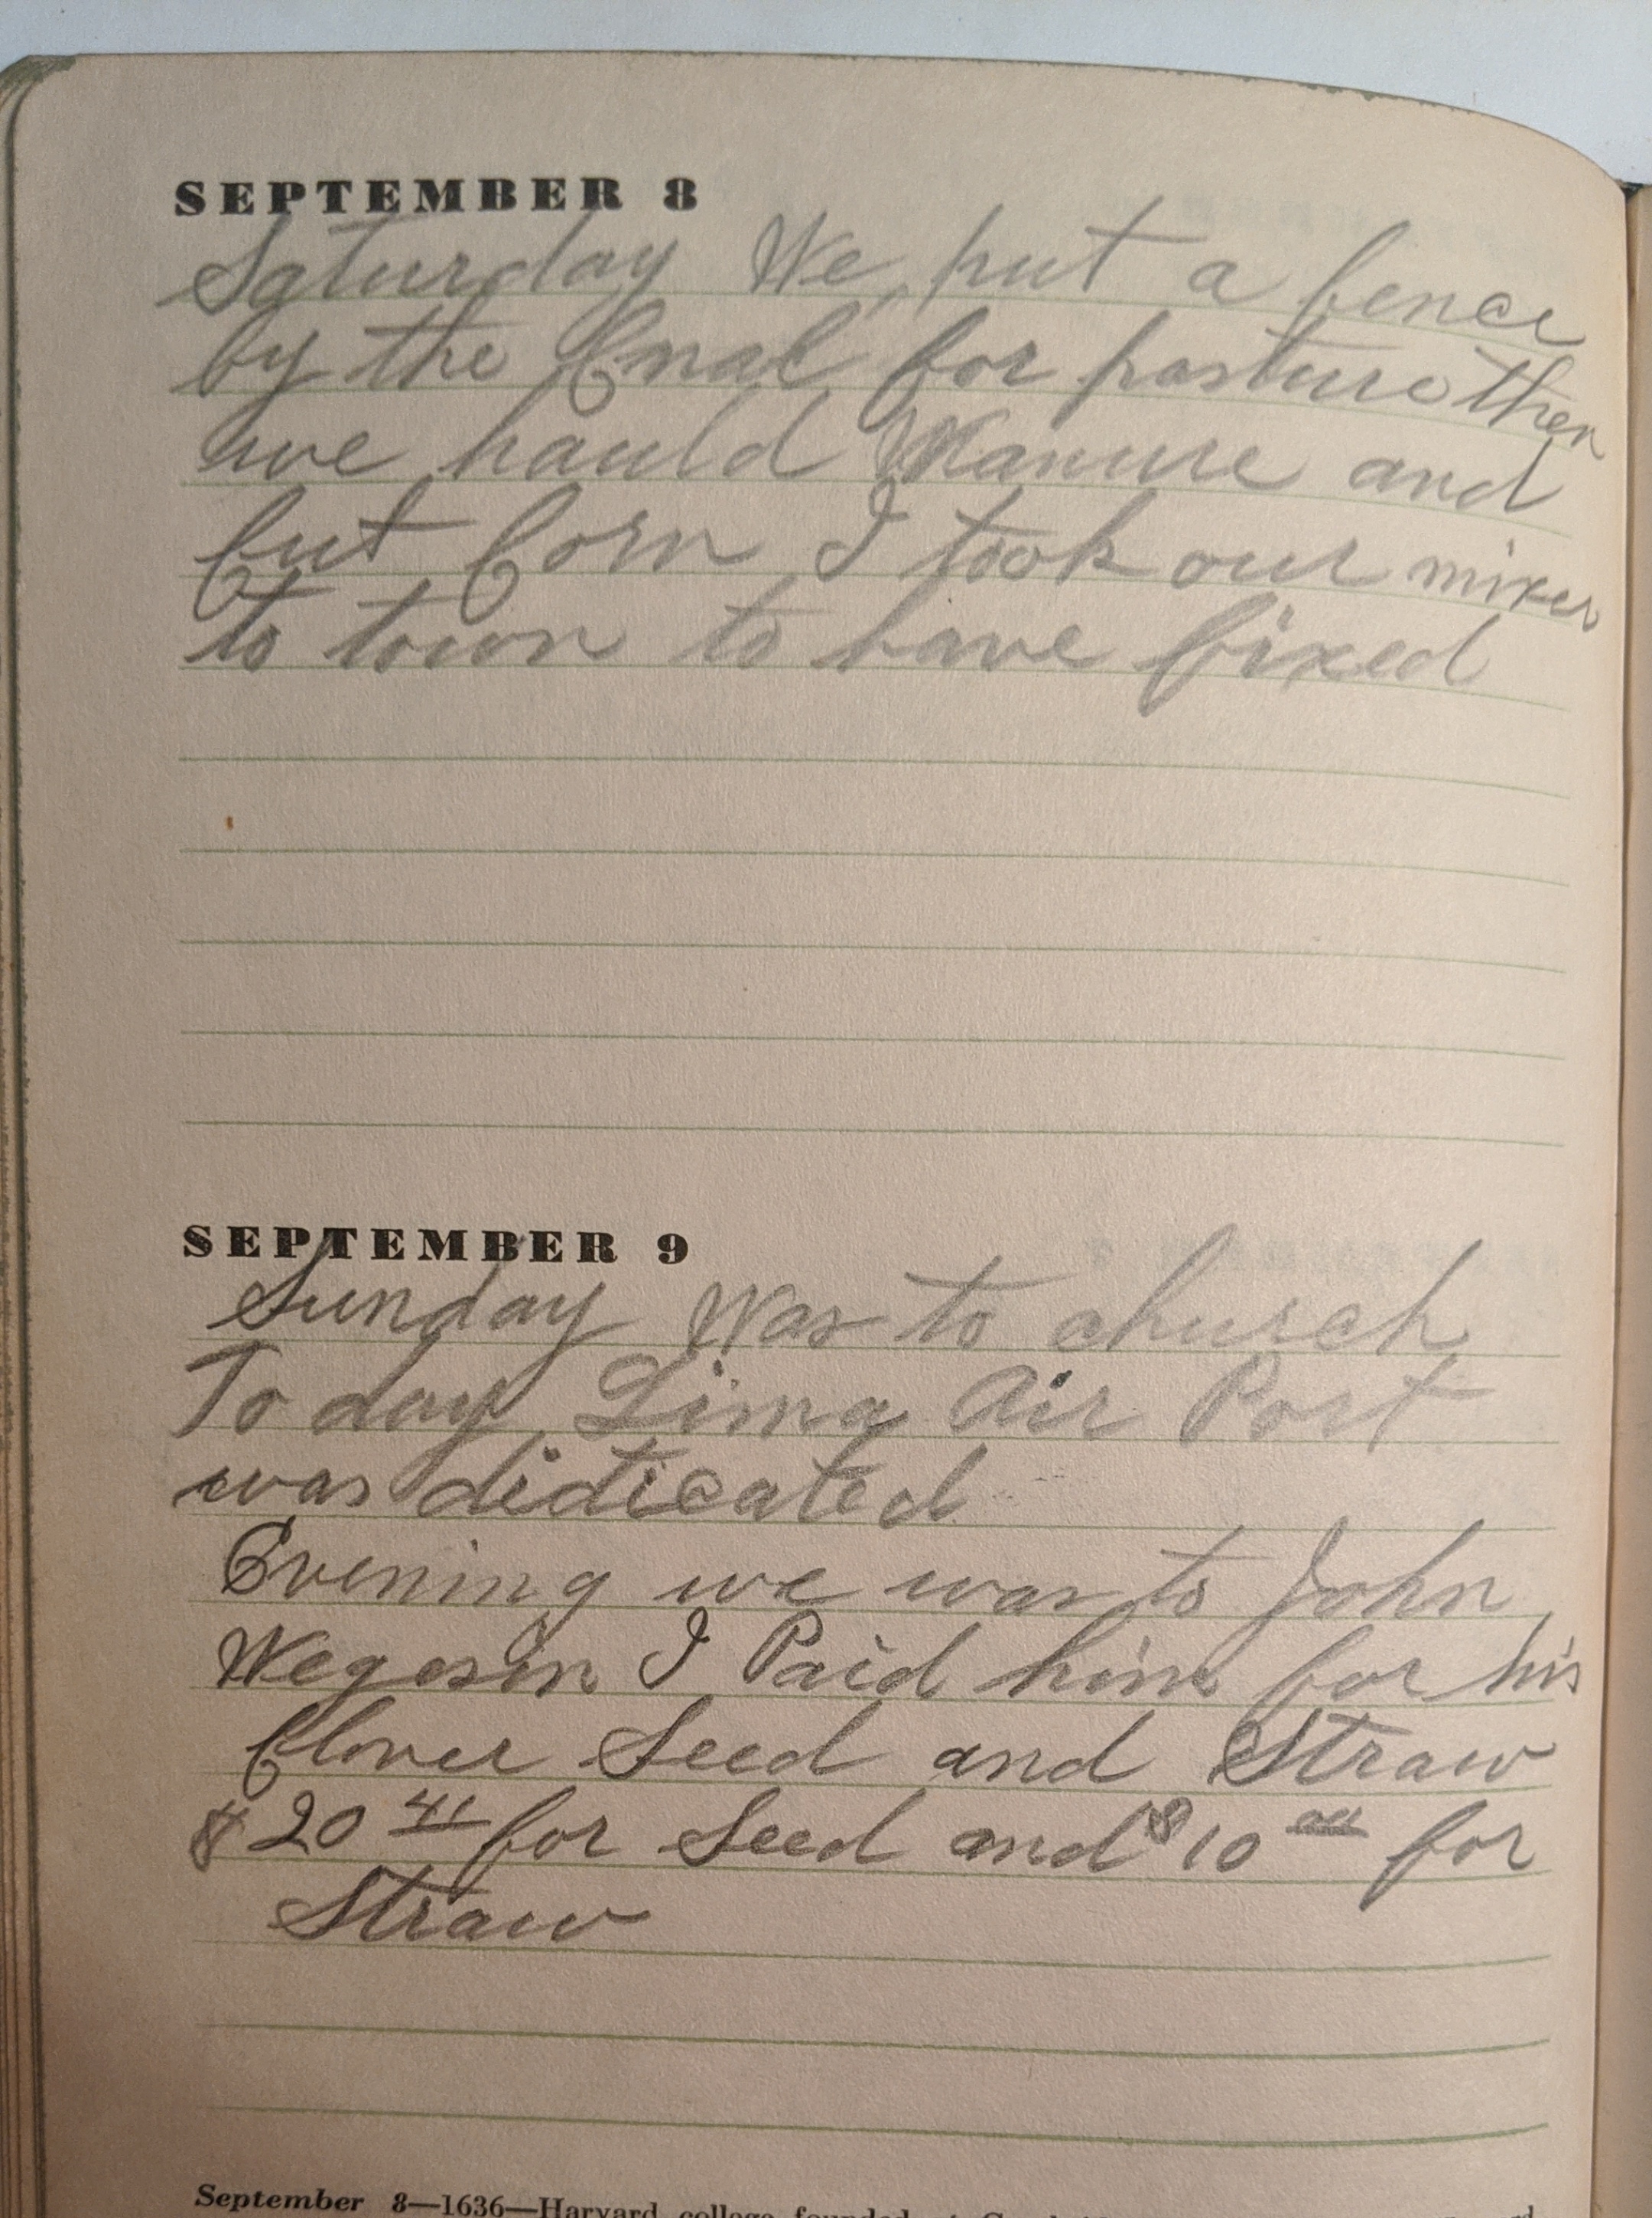 SEPTEMBER 8
Saturday We put a fence
by the Cnal for pasture then
we hauld Manure and
Cut Corn I took our mixer
to town to have fixed
SEPTEMBER 9
Sunday Was to church
To day Lima Air Port
was didicated
Evening we was to John
I Paid him for his
Clover Seed and Straw
$20 41 for Seed and $10 00 for
Straw
September 8—1636—Harvard college founded